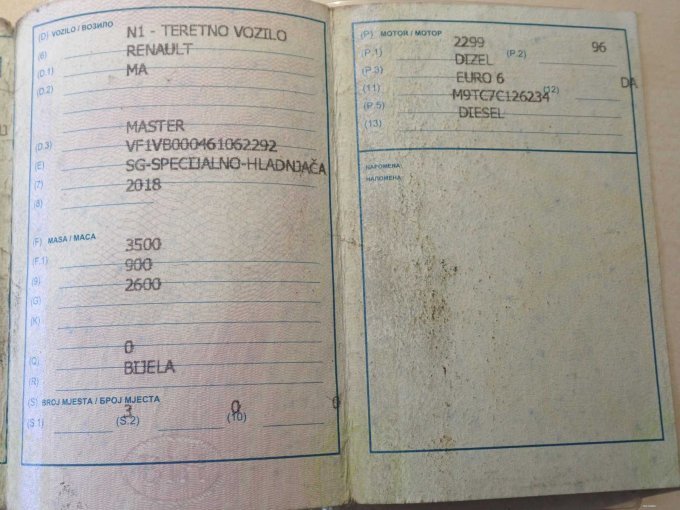 (D) VOZILO / ВОЗИЛО N1 - TERETNO VOZILO
(6) RENAULT
(D.1) MA
(D.2)
MASTER
(D.3) VF1VB000461062292
(E) SG-SPECIJALNO-HLADNJAČA
(7) 2018
(8)
(F) MASA / МАСА 3500
(F.1) 900
(9) 2600
(G)
(K)
0
(Q) BIJELA
(R)
(S) BROJ MJESTA / БРОЈ МЈЕСТА
(S.1) 3 (S.2) 0 (10) 0
(P) MOTOR / МОТОР
(P.1) 2299 (P.2) 96
(P.3) DIZEL
(11) EURO 6 (12) DA
(P.5) M9TC7C126234
(13) DIESEL
NAPOMENA:
НАПОМЕНА: